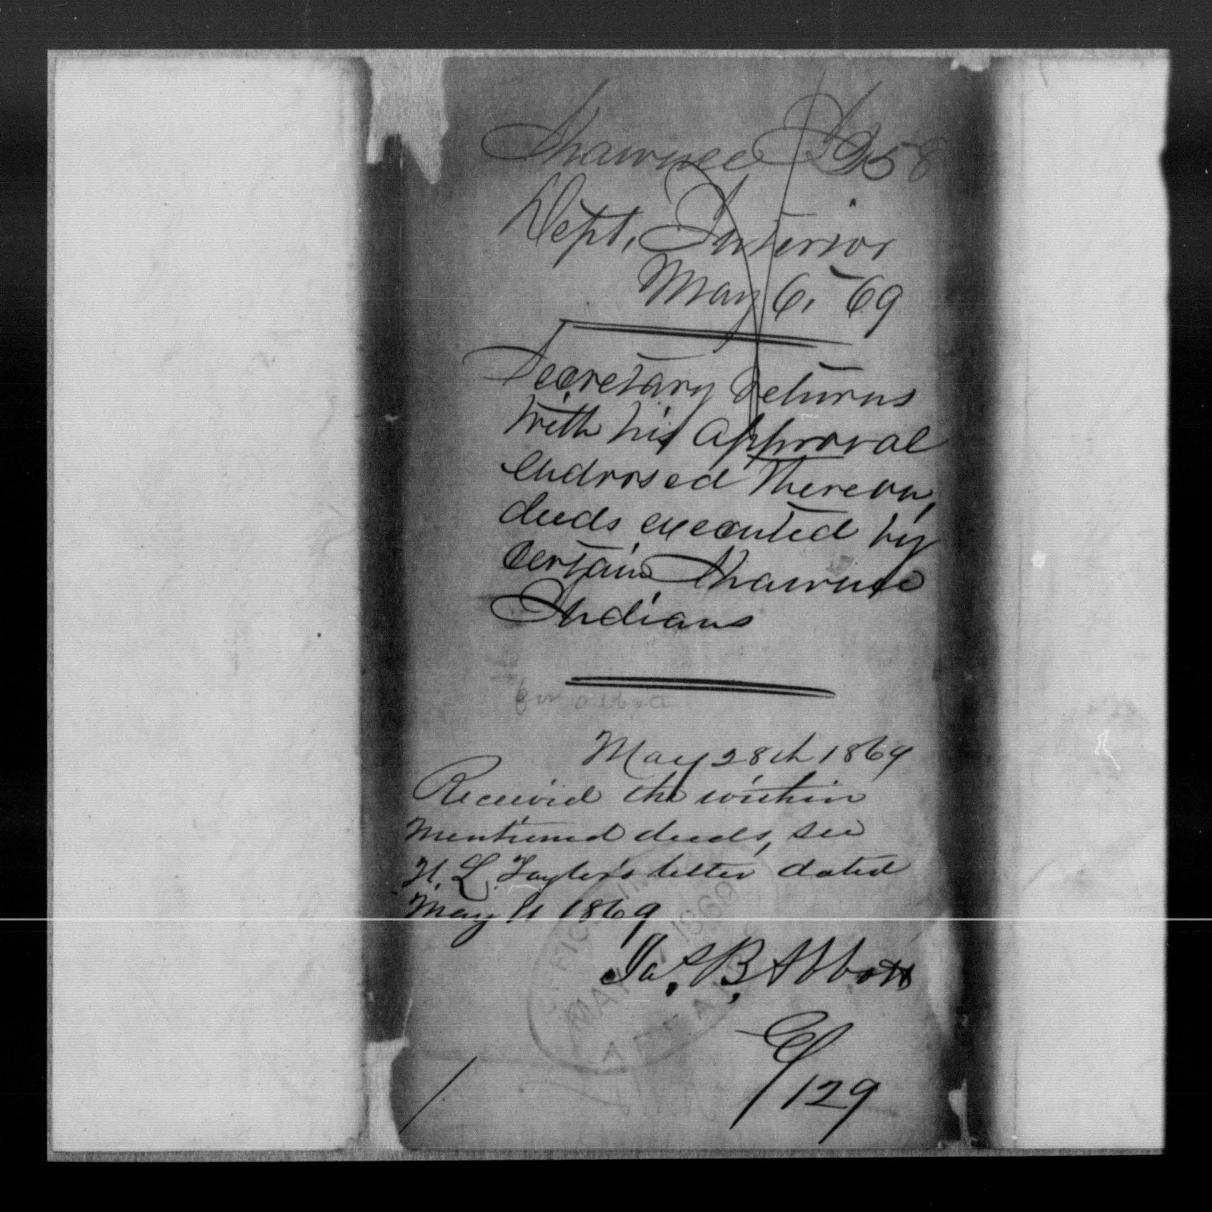 Shawnee I 258
Dept. Interior
May 6, '69
Secretary returns
with his approval
endorsed thereon,
deeds executed by
certain Shawnee
Indians
May 28th 1869
Received the within
mentioned deeds, see
N. L. Taylor's letter dated
May 11 1869
Jas. B. Abbott
MAY 7 1869
129